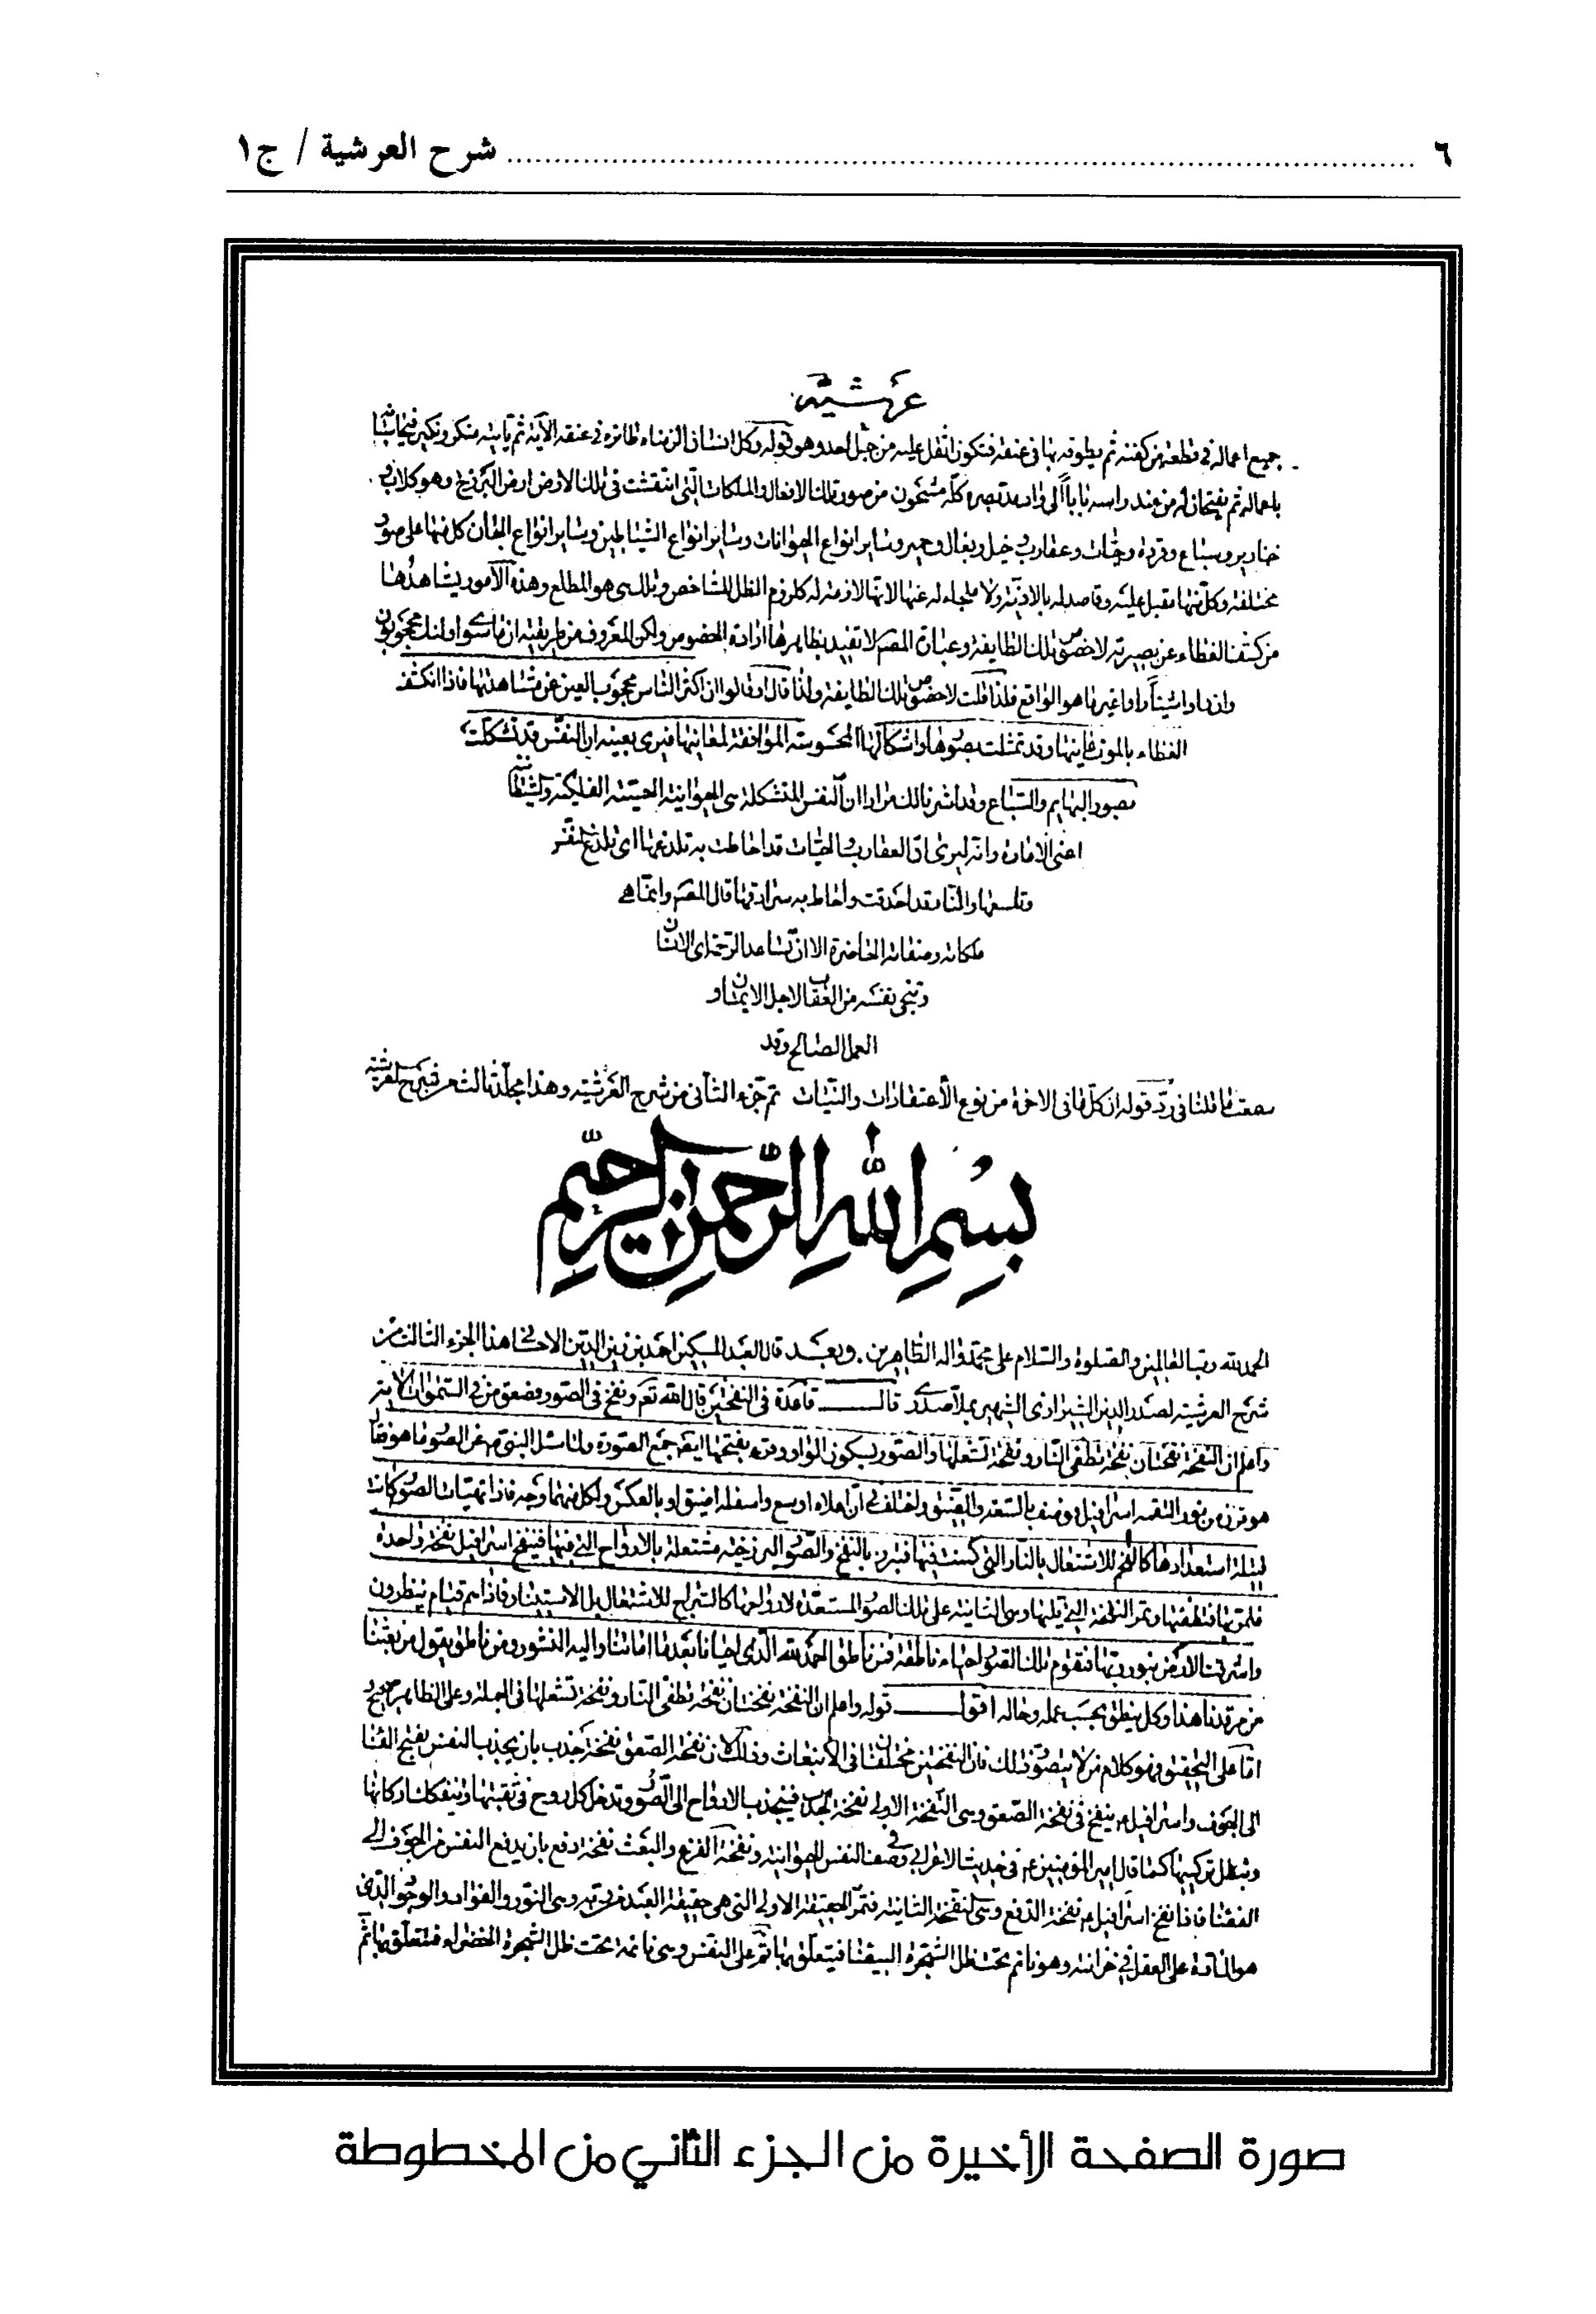 ٦ ........ شرح العرشية / ج١
عرشية
جميع اعماله في قطعة من كفنه ثم يطوقه بها في عنقه فتكون اثقل عليه من جبل احد وهو قوله وكل انسان الزمناه طائره في عنقه الآية ثم يأتيه منكر ونكير فيحاسبانه
باعماله ثم يفتحان له من عند راسه بابا الى كله مشحون من صور تلك الافعال والملكات التي انتقشت في تلك الارض ارض البرزخ وهو كلاب و
خنازير وسباع وقردة وحيات وعقارب وخيل وبغال وحمير وساير انواع الحيوانات وساير انواع الشياطين وساير انواع الجان كل منها على صور
مختلفة وكل منها مقبل عليه وقاصد له بالاذية ولا ملجاء له عنها لانها لازمة له كلزوم الظل للشاخص وتلك هي هو المطلع وهذه الامور يشاهدها
من كشف الغطاء عن بصيرته لا خصوص تلك الطايفة وعبارة المص لا تفيد بظاهرها ارادة الخصوص ولكن المعروف من طريقته ان ما سوى اولئك محجوبون
وان راوا شيئا راوا غير ما هو الواقع فلذا قلت لا خصوص تلك الطايفة ولذا قال او قالوا ان اكثر الناس محجوب العين عن مشاهدتها فاذا انكشف
الغطاء بالموت عاينها وقد تمثلت بصورها واشكالها المحسوسة الموافقة لمعانيها فيرى بعينه ان النفس قد تشكلت
بصور البهايم والسباع وقد اشرنا لك مرارا ان النفس المتشكلة هي الحيوانية الحسية الفلكية والشيطانية
اعني الامارة وانه ليرى ان العقارب والحيات قد احاطت به تلدغها اي تلدغ نفسه
وتلسعها والنار قد احدقت واحاط به سرادقها قال المص وانما هي
ملكاته وصفاته الحاضرة الا ان تساعد الرحمة اي الانسان
وتنجي نفسه من العقاب لاجل الايمان و
العمل الصالح وقد
سمعت ما قلنا في رد قوله ان كل ما في الاخرة من نوع الاعتقادات والنيات تم جزء الثاني من شرح العرشية وهذا مجلد ثالث في شرح العرشية
بسم الله الرحمن الرحيم
الحمد لله رب العالمين والصلوة والسلام على محمد واله الطاهرين وبعد قال العبد المسكين احمد بن زين الدين الاحسائي هذا الجزء الثالث من
شرح العرشية لصدر الدين الشيرازي الشهير بملا صدرى قال قاعدة في النفختين قال الله تعالى ونفخ في الصور فصعق من في السموات الاية
واعلم ان النفخة نفختان نفخة تطفي النار ونفخة تشعلها والصور بسكون الواو وقرء بفتحها ايضا جمع الصورة ولما سئل النبي ص عن الصور ما هو فقال
هو قرن من نور التقمه اسرافيل ووصف بالسعة والضيق واختلف في ان اعلاه اوسع واسفله اضيق او بالعكس ولكل منهما وجه فاذا تهيأت الصور كانت
فتيلة استعدادها كالفحم للاشتعال بالنار التي كمنت فيها فتبرز بالنفخ والصور البرزخية مشتعلة بالارواح التي فيها فينفخ اسرافيل نفخة واحدة
فتمر بها فتطفيها وتمر النفخة التي تليها وهي الثانية على تلك الصور المستعدة لارواحها كالسراج للاشتعال بل الاستنارة فاذا هم قيام ينظرون
واشرقت الارض بنور ربها فتقوم تلك الصور احياء ناطقة فمن ناطق الحمد لله الذي احيانا بعد ما اماتنا واليه النشور ومن ناطق يقول من بعثنا
من مرقدنا هذا وكل ينطق بحسب عمله وحاله اقول قوله واعلم ان النفخة نفختان نفخة تطفي النار ونفخة تشعلها في الجملة وعلى الظاهر صحيح و
اما على التحقيق فهو كلام من لا يتصور ذلك فان النفختين مختلفتان في الانبعاث وذلك لان نفخة الصعق نفخة جذب بان يجذب النفس بفتح الفاء
الى الجوف واسرافيل ينفخ في نفخة الصعق وهي النفخة الاولى نفخة الجذب فينجذب الارواح الى الصور وتدخل كل روح في ثقبتها وتتفكك اركانها
وتبطل تركيبها كما قال امير المؤمنين ع في حديث الاعرابي في وصف النفس الحيوانية ونفخة الفزع والبعث نفخة دفع بان يدفع النفس من الجوف الى
الفضاء فاذا نفخ اسرافيل نفخة الدفع وهي النفخة الثانية فتمر الحقيقة الاولى التي هي حقيقة العبد من ربه وهي النور والفؤاد والوجود الذي
هو المادة على العقل في خزانته وهو نائم تحت ظل الشجرة البيضاء فيتعلق بها ثم تمر على النفس وهي نائمة تحت ظل الشجرة الخضراء فتتعلق بها ثم
صورة الصفحة الأخيرة من الجزء الثاني من المخطوطة